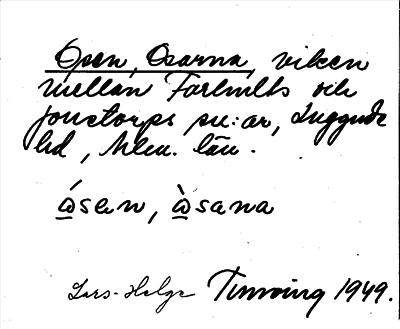 Ösen, Osarna, viken
mellan Farhults och
Jonstorps sn:ar, Luggude
hd, Mlm. län.
ώsen, ὼsana
Lars-Helge Tunving 1949.